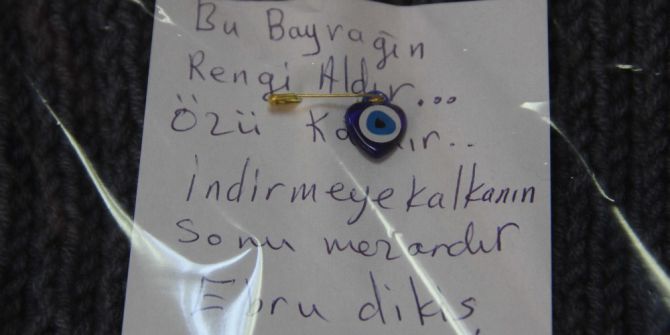 Bu Bayrağın
Rengi Aldır...
Özü
indirmeye kalkanın
sonu mezardır
Ebru dikiş